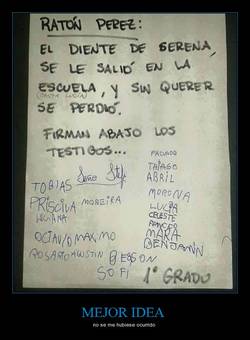 RATÓN PEREZ:
EL DIENTE DE SERENA,
SE LE SALIÓ EN LA
ESCUELA, Y SIN QUERER
SE PERDIÓ.
FIRMAN ABAJO LOS
TESTIGOS...
FACUNDO
THIAGO
TOBIAS
ABRIL
PRISCILA MOREIRA
MORONA
LUCIANA
LUCIA
CELESTE
OCTAVIO MAXIMO
MARIA
BENJAMN
ROSARIO AGUSTIN
SOFI
1° GRADO
MEJOR IDEA
no se me hubiese ocurrido